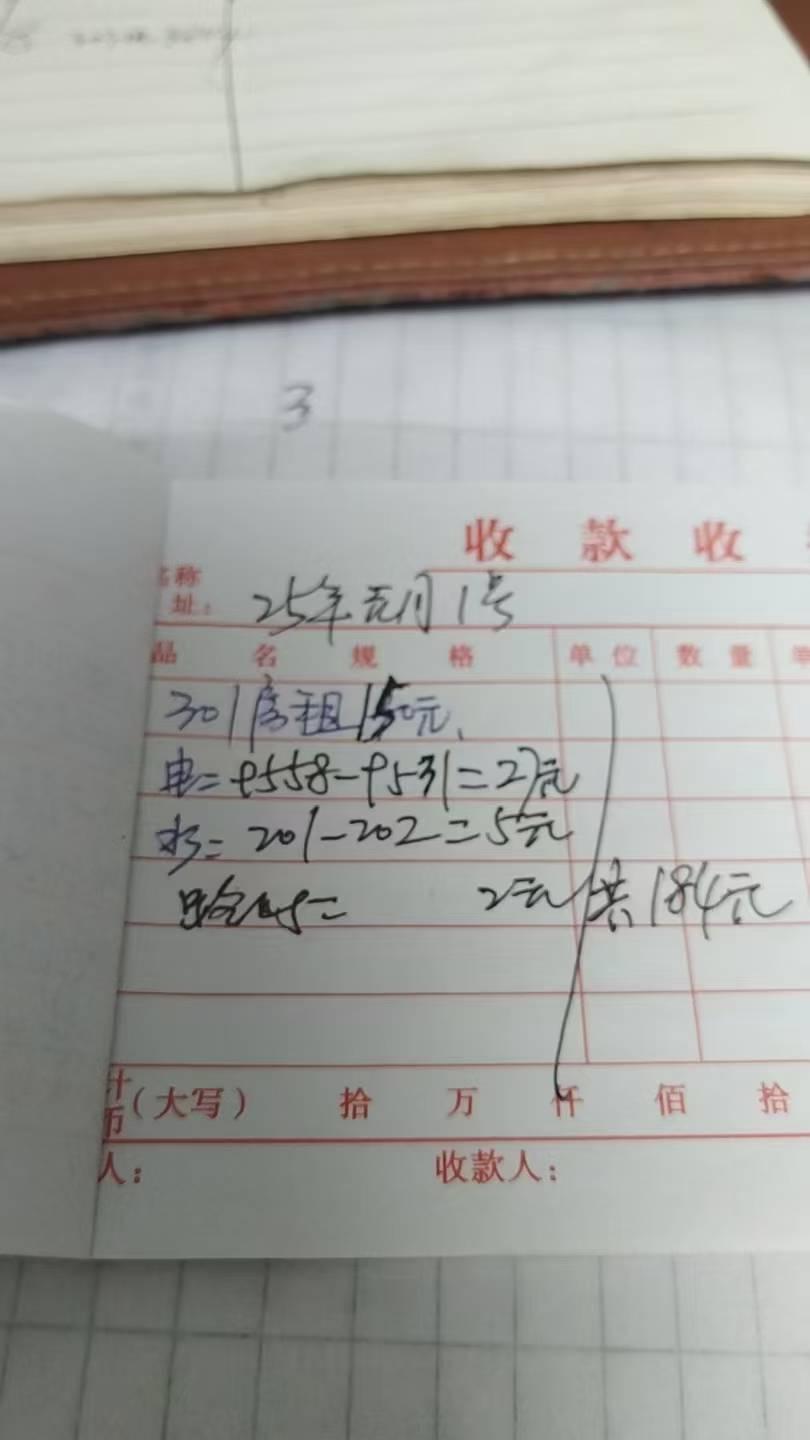 3
收 款 收
名称
址： 25年元月1号
品 名 规 格 单位 数量 单
301房租150元、
电=9558-9531=27元
水=201-202=5元
2元 共184元
计
币 （大写） 拾 万 仟 佰 拾
人： 收款人：